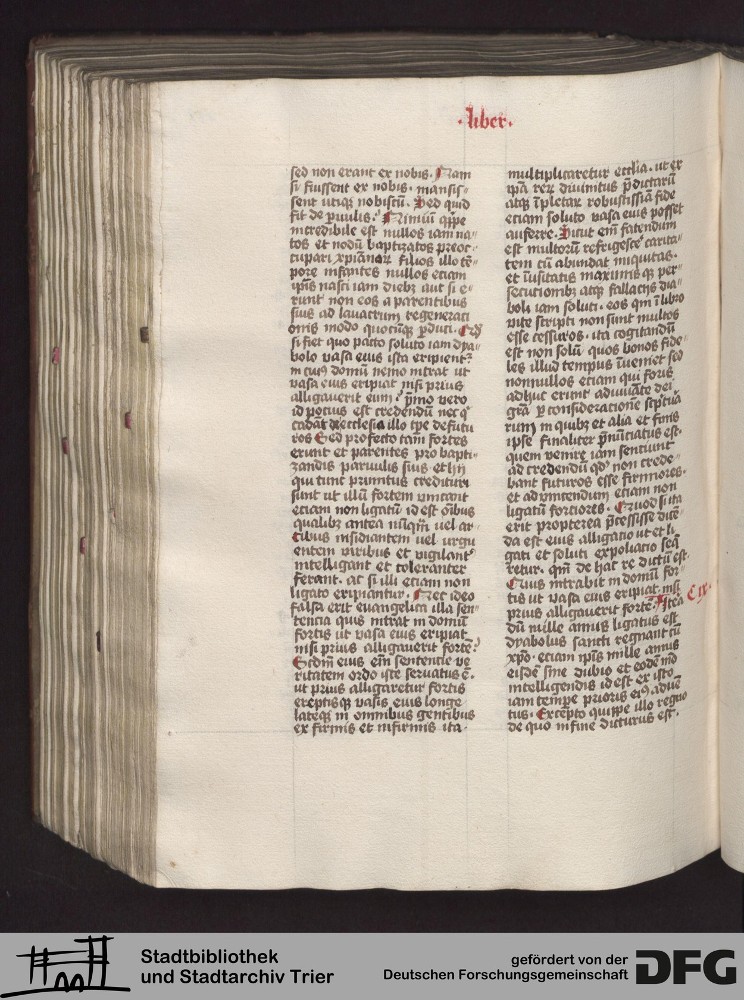 ·liber·
sed non erant ex nobis. Nam
si fuissent ex nobis. mansis-
sent utiqȝ nobiscū. Sed quid
fit de p̱uulis. Nimiū qp̄pe
incredibile est nullos iam na-
tos et nōdū baptizatos preoc-
cupari xp̄ianoꝝ filios illo tē-
pore infantes nullos etiam
ip̄is nasci iam diebꝫ aut si e-
runt non eos a parentibus
suis ad lauacrum regenerati
onis modo quocūqȝ p̱duci. Qd̄
si fiet quo pacto soluto iam dya-
bolo vasa eius ista eripientꝛ
in cuiꝰ domū nemo intrat ut
vasa eius eripiat nisi prius
alligauerit eum. ymo vero
id potius est credendū nec qͥ
cadāt de ecclesia illo tp̄e defutu
ros Sed profecto tam fortes
erunt et parentes pro bapti-
zandis paruulis suis et hij
qui tunc primitus credituri
sunt ut illū fortem vincant
etiam non ligatū id est oībus
qualibꝫ antea nūqͣm uel ar-
tibus insidiantem uel urgu
entem viribus et vigilantͬ
intelligant et toleranter
ferant. at si illi etiam non
ligato eripiantur. Nec ideo
falsa erit euangelica illa sen-
tencia quis intrat in domū
fortis ut vasa eius eripiat
nisi prius alligauerit forte.
Scdm̄ eius em̄ sentencie ve
ritatem ordo iste seruatus ē.
ut prius alligaretur fortis
ereptisqȝ vasis eius longe
lateqȝ in omnibus gentibus
ex firmis et infirmis ita
multiplicaretur ecc̄lia. ut ex
ip̄a reꝝ diuinitus p̄dictarū
atqȝ īpletaꝝ robustissīa fide
etiam soluto vasa eius posset
auferre. Sicut em̄ fatendum
est multorū refrigesce͛ carita-
tem cū abundat iniquitas.
et īusitatis maximisqȝ per-
secutionibꝫ atqȝ fallaciis dia-
boli iam soluti. eos qui ī libro
vite scripti non sunt multos
esse cessuros. ita cogitandū
est non solū quos bonos fide-
les illud tempus īueniet sed
nonnullos etiam qui foris
adhuc erunt adiuuāte dei
gr̄a p̱ consideratione sc̄ptura
rum in quibꝫ et alia et finis
ipse finaliter p̄nūciatus est.
quem venire iam sentiunt
ad credendū qd̓ non crede-
bant futuros esse firmiores.
et ad vincendum etiam non
ligatū fortiores. Quod si ita
erit propterea p̄cessisse dicē-
da est eius alligatio ut et li
gati et soluti expoliatio seq̄
retur. qm̄ de hac re dictū est.
Quis intrabit in domū for-
tis ut vasa eius eripiat nisi
prius alligauerit forte. Itea C ix.
dū mille annis ligatus est
dyabolus sancti regnant cū
xp̄o. etiam ip̄is mille annis
eisdē sine dubio et eodē mō
intelligendis id est ex isto
iam tempe prioris eiꝰ aduē
tus. Excepto quippe illo regno
de quo in fine dicturus est.
Stadtbibliothek
und Stadtarchiv Trier
gefördert von der
Deutschen Forschungsgemeinschaft
DFG